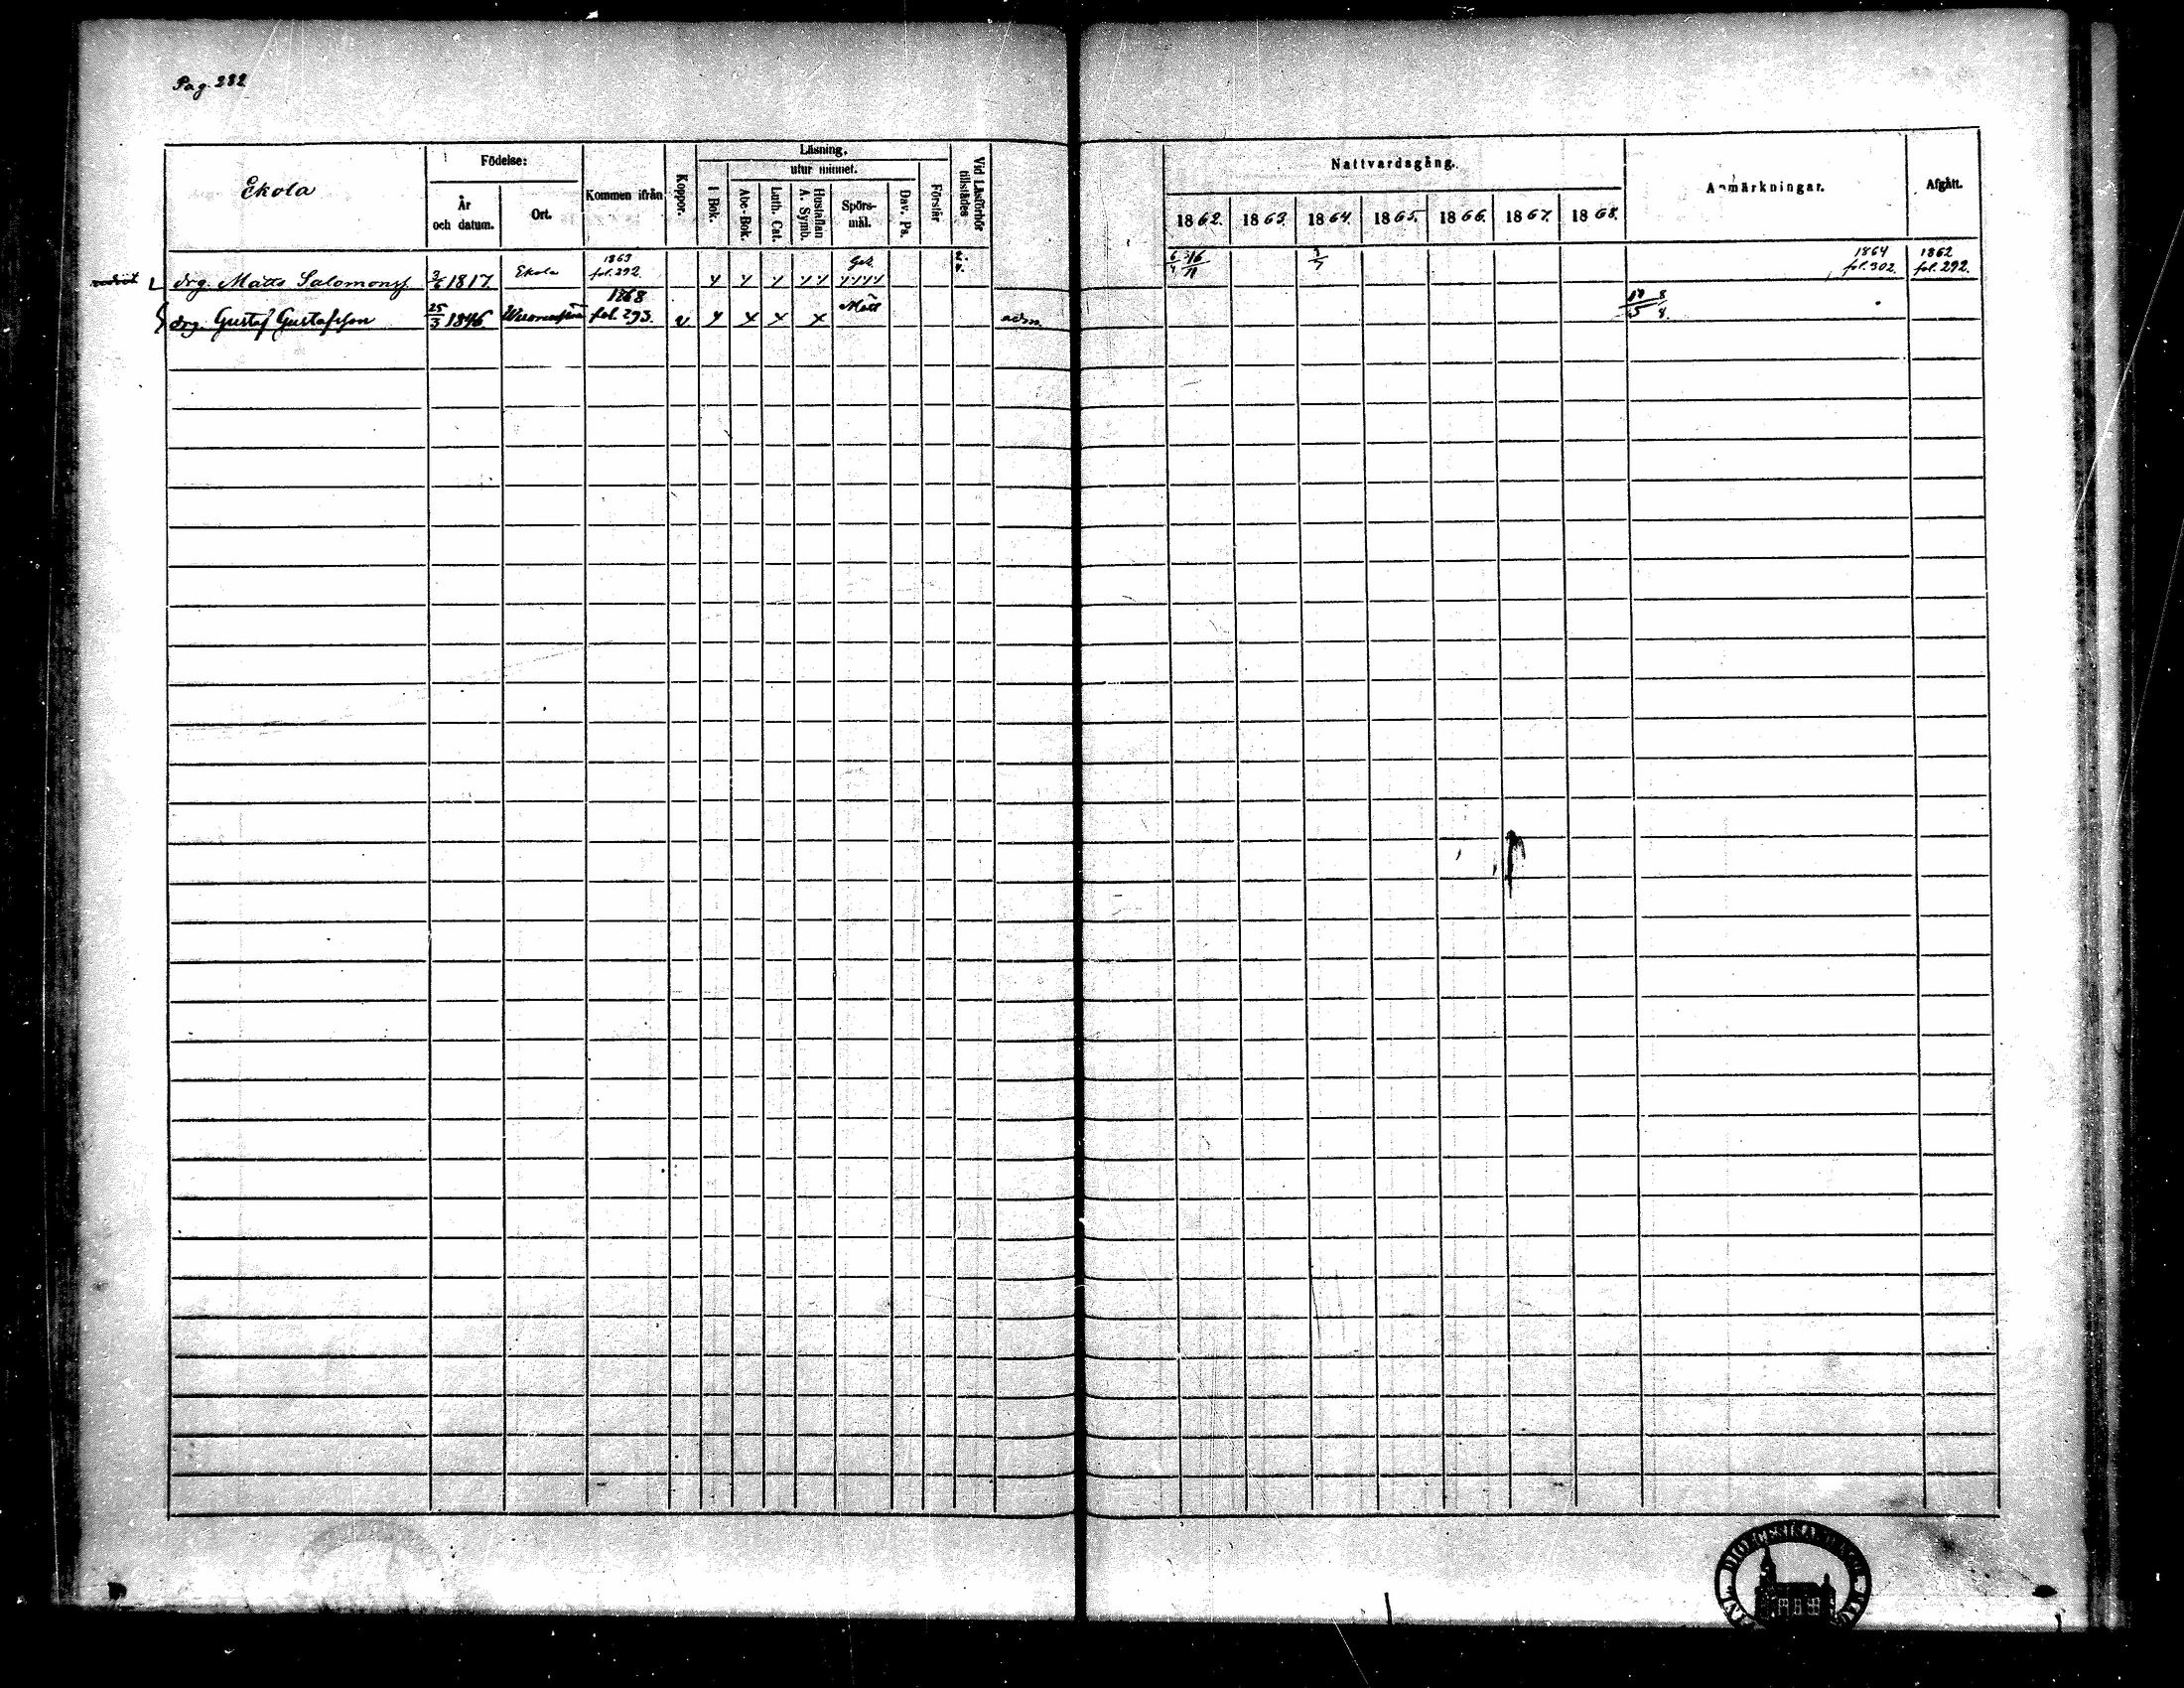 Pag. 282
Ekola
Födelse:
År
och datum.
Ort.
Kommen ifrån
Koppor.
Läsning.
utur minnet.
I Bok.
Abc-Bok.
Luth. Cat.
Hustaflan
A. Symb.
Spörs-
mål.
Dav. Ps.
Förstår
Vid Läsförhör
tillstädes
Nattvardsgång.
1862. 1863. 1864. 1865. 1866. 1867. 1868.
Anmärkningar.
Afgått.
drg. Matts Salomonss. 3/6 1817. Ekola 1863 fol. 292. 6/4 16/11 3/7 1864 fol. 302. 1862 fol. 292.
drg. Gustaf Gustafsson 25/3 1846 1868 fol. 293. v. Mått adm.